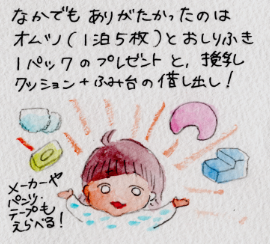 なかでも ありがたかったのは
オムツ(1泊5枚)とおしりふき
1パックのプレゼントと,授乳
クッション+ふみ台の借し出し!
メーカーや
パンツ・
テープも
えらべる!